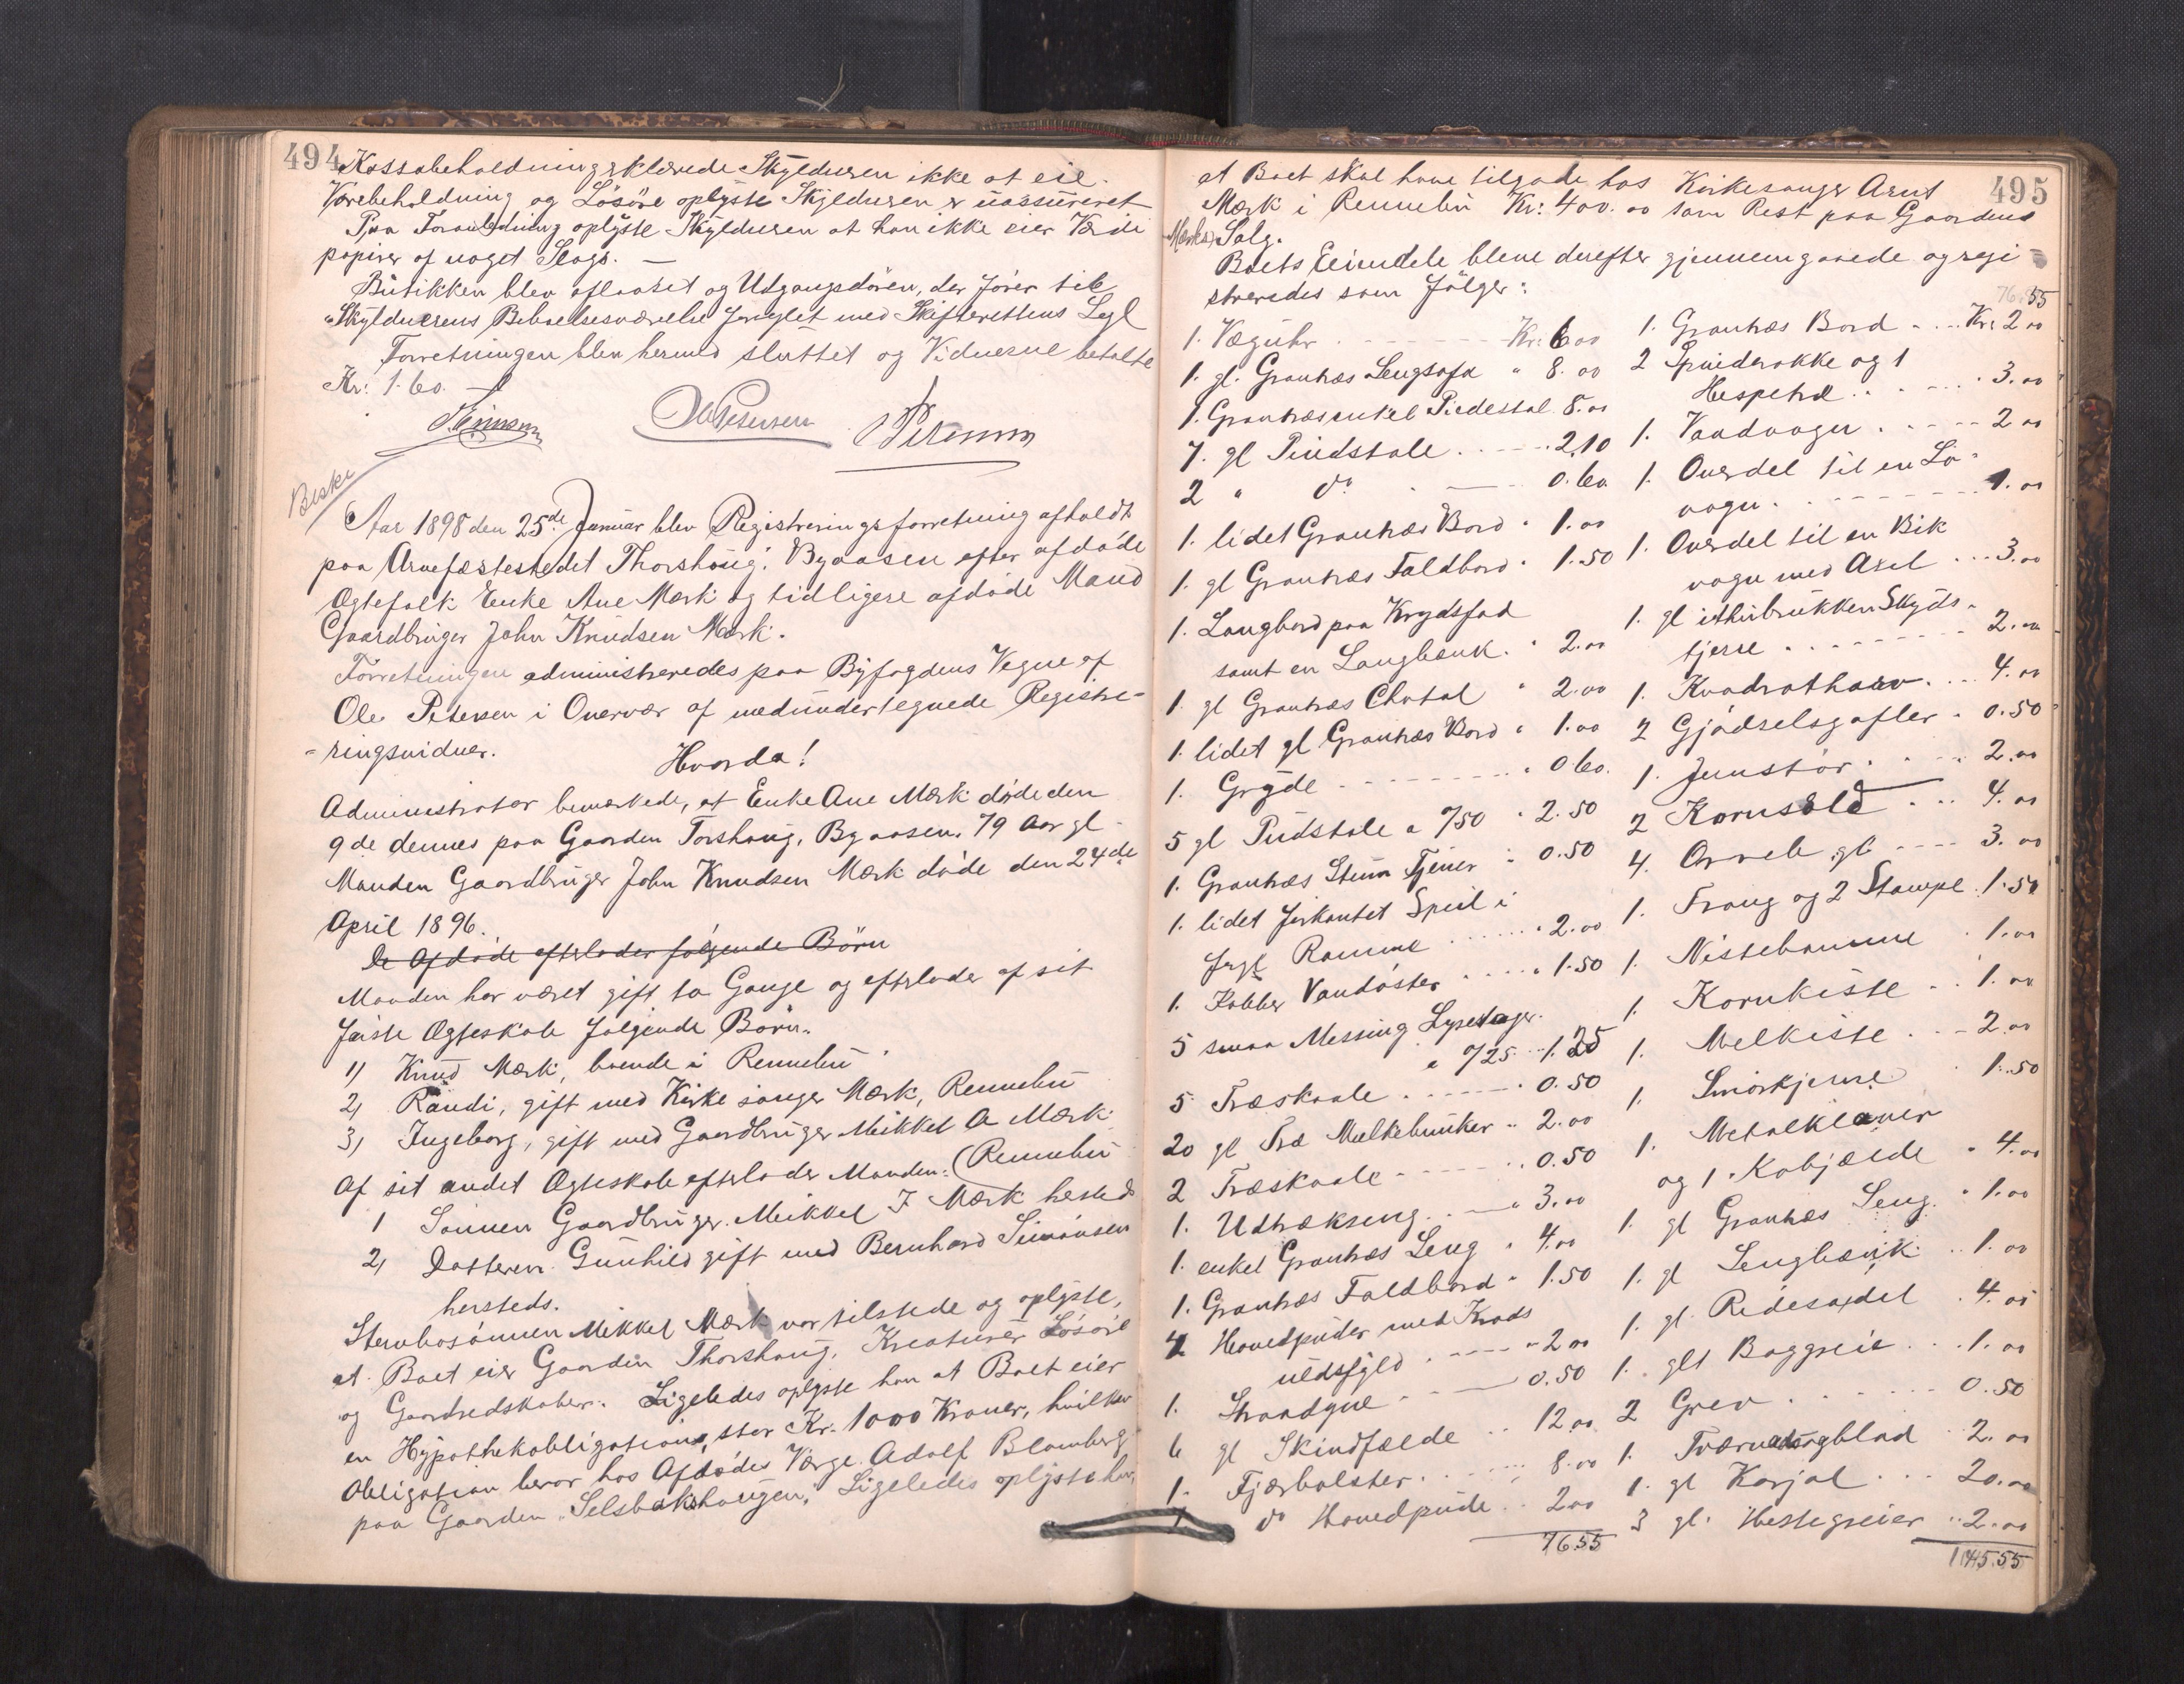 494
Kassabeholdning erklærede Skyldneren ikke at eie.
Varebeholdning og Løsøre oplyste Skyldneren er uassureret
Paa Foranledning oplyste Skyldneren at han ikke eier Værdi
papirer af noget Slags. —
Butikken blev aflaaset og Udgangsdøren, der fører til
Skyldnerens Beboelsesværelse forseglet med Skifterettens Segl
Forretningen blev hermed sluttet og Vidnerne betalte
Kr: 1.60.
Ole Petersen
Aar 1898 den 25de Januar blev Registreringsforretning afholdt
paa Arvefæstestedet Thorshoug i Byaasen efter afdøde
Ægtefolk Enke Ane Mærk og tidligere afdøde Mand
Gaardbruger John Knudsen Mærk.
Forretningen administreredes paa Byfogdens Vegne af
Ole Petersen i Overvær af medundertegnede Registre-
-ringsvidner.
Hvorda!
Administrator bemærkede, at Enke Ane Mærk døde den
9de dennes paa Gaarden Torshoug, Byaasen, 79 Aar gl.
Manden Gaardbruger John Knudsen Mærk døde den 24de
April 1896.
De Afdøde efterlader følgende Børn
Manden har været gift to Gange og efterlader af sit
første Ægteskab følgende Børn.
1) Knud Mærk, boende i Rennebu
2) Randi, gift med Kirkesanger Mærk, Rennebu
3) Ingeborg, gift med Gaardbruger Mikkel A Mærk
(Rennebu
Af sit andet Ægteskab efterlader Manden:
1 Sønnen Gaardbruger Mikkel J Mærk hersteds
2) Datteren Gunhild gift med Bernhard Simonsen
hersteds.
Stervbosønnen Mikkel Mærk var tilstede og oplyste,
at Boet eier Gaarden Thorshoug, Kreaturer Løsøre
og Gaardredskaber. Ligeledes oplyste han at Boet eier
en Hypothekobligation, stor Kr. 1000 Kroner, hvilken
Obligation beror hos Afdødes Værge Adolf Blomberg
paa Gaarden "Selsbakhaugen," Ligeledes oplyste han,
495
at Boet skal have tilgode hos Kirkesanger Arnt
Mærk i Rennebu Kr: 400.00 som Rest paa Gaarden
Mærks Salg.
Boets Eiendele bleve derefter gjennemgaaede og regi-
streredes som følger:
1. Væguhr Kr: 6 00
1. gl. Grantræs Sengsofa " 8.00
1. Grantræs enkel Piedestal 8.00
7. gl Pindstole 2.10
2 " do 0.60
1. lidet Grantræs Bord " 1.00
1. gl Grantræs Faldbord " 1.50
1. Langbord paa Krydsfod
samt en Langbænk. " 2.00
1. gl Grantræs Chatol " 2.00
1. lidet gl Grantræs Bord " 1.00
1. Gryde " 0.60.
5 gl Pindstole a /50 " 2.50
1. Grantræs Stum Tjener " 0.50
1. lidet firkantet Speil i
forgt Ramme " 2.00
1. Kobber Vandøster " 1.50
5 smaa Messing Lysestager
a /25 1.25
5 Træskaale " 0.50
20 gl Træ Melkebunker " 2.00
2 Træskaale " 0.50
1. Udtrækseng " 3.00
1. enkel Grantræs Seng " 4.00
1. Grantræs Faldbord " 1.50
4 Hovedpuder med Krads
uldsfyld " 2 00
1. Straadyne 0.50
6 gl Skindfælde 12 00
1. Fjærbolster 8.00
1 do Hovedpude 2 00
76.55
76.55
1. Grantræs Bord Kr: 2 00
2 Spinderokke og 1
Hespetræ 3.00
1. Vandvogn 2 00
1. Overdel til en Lø-
vogn 1.00
1. Overdel til en Bik
vogn med Axel 3.00
1. gl itubrukken Skyds-
kjerre 2.00
1. Kvadratharv 4.00
2 Gjødselsgafler " 0.50
1. Jernstør 2.00
2 Kornsold 4.00
4. Orveb gl 3.00
1. Trang og 2 Stampe 1.50
1. Nistebomme 1.00
1. Kornkiste 1.00
1. Melkiste 2.00
1. Smørkjerne 1.50
1. Metalklaver
og 1 Kobjælde " 4.00
1. gl Grantræs Seng " 1.00
1. gl Sengbænk 1.00
1. gl. Ridesadel 4.00
1. glt Baggreie 1.00
2 Grev 0.50
1. Tværvedsagblad 2.00
1. gl Karjol 20.00
3 gl. Hestegreier 2.00
145.55